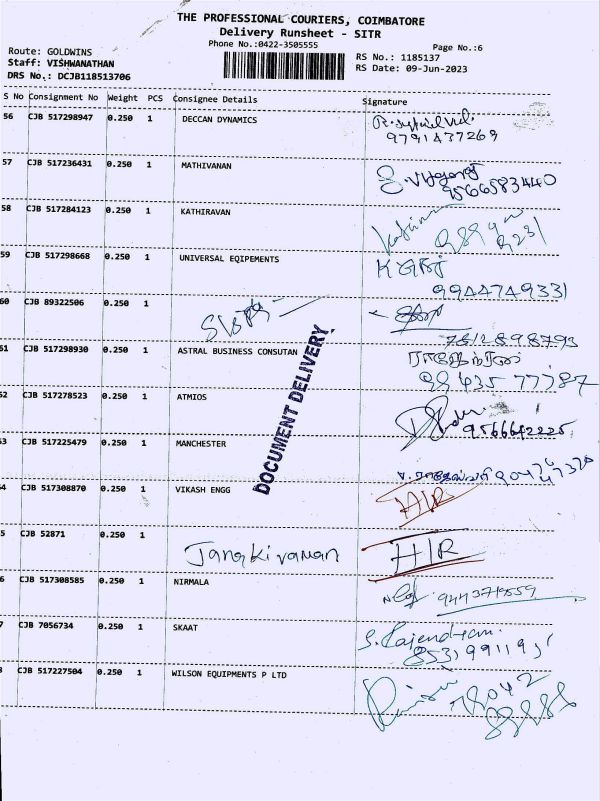 THE PROFESSIONAL COURIERS, COIMBATORE
Delivery Runsheet - SITR
Phone No.:0422-3505555
Page No.:6
Route: GOLDWINS
RS No.: 1185137
Staff: VISHWANATHAN
RS Date: 09-Jun-2023
DRS No.: DCJB118513706
S No Consignment No Weight PCS Consignee Details Signature
56 CJB 517298947 0.250 1 DECCAN DYNAMICS
9791437269
57 CJB 517236431 0.250 1 MATHIVANAN
9566583440
58 CJB 517284123 0.250 1 KATHIRAVAN
59 CJB 517298668 0.250 1 UNIVERSAL EQIPEMENTS
9944749331
60 CJB 89322506 0.250 1
7812898793
61 CJB 517298930 0.250 1 ASTRAL BUSINESS CONSUTAN
98435 77787
DOCUMENT DELIVERY
62 CJB 517278523 0.250 1 ATMIOS
9566642225
3 CJB 517225479 0.250 1 MANCHESTER
4 CJB 517308870 0.250 1 VIKASH ENGG HIR
5 CJB 52871 0.250 1
Janakiraman HIR
6 CJB 517308585 0.250 1 NIRMALA
7 CJB 7056734 0.250 1 SKAAT S. Rajendran.
8 CJB 517227504 0.250 1 WILSON EQUIPMENTS P LTD